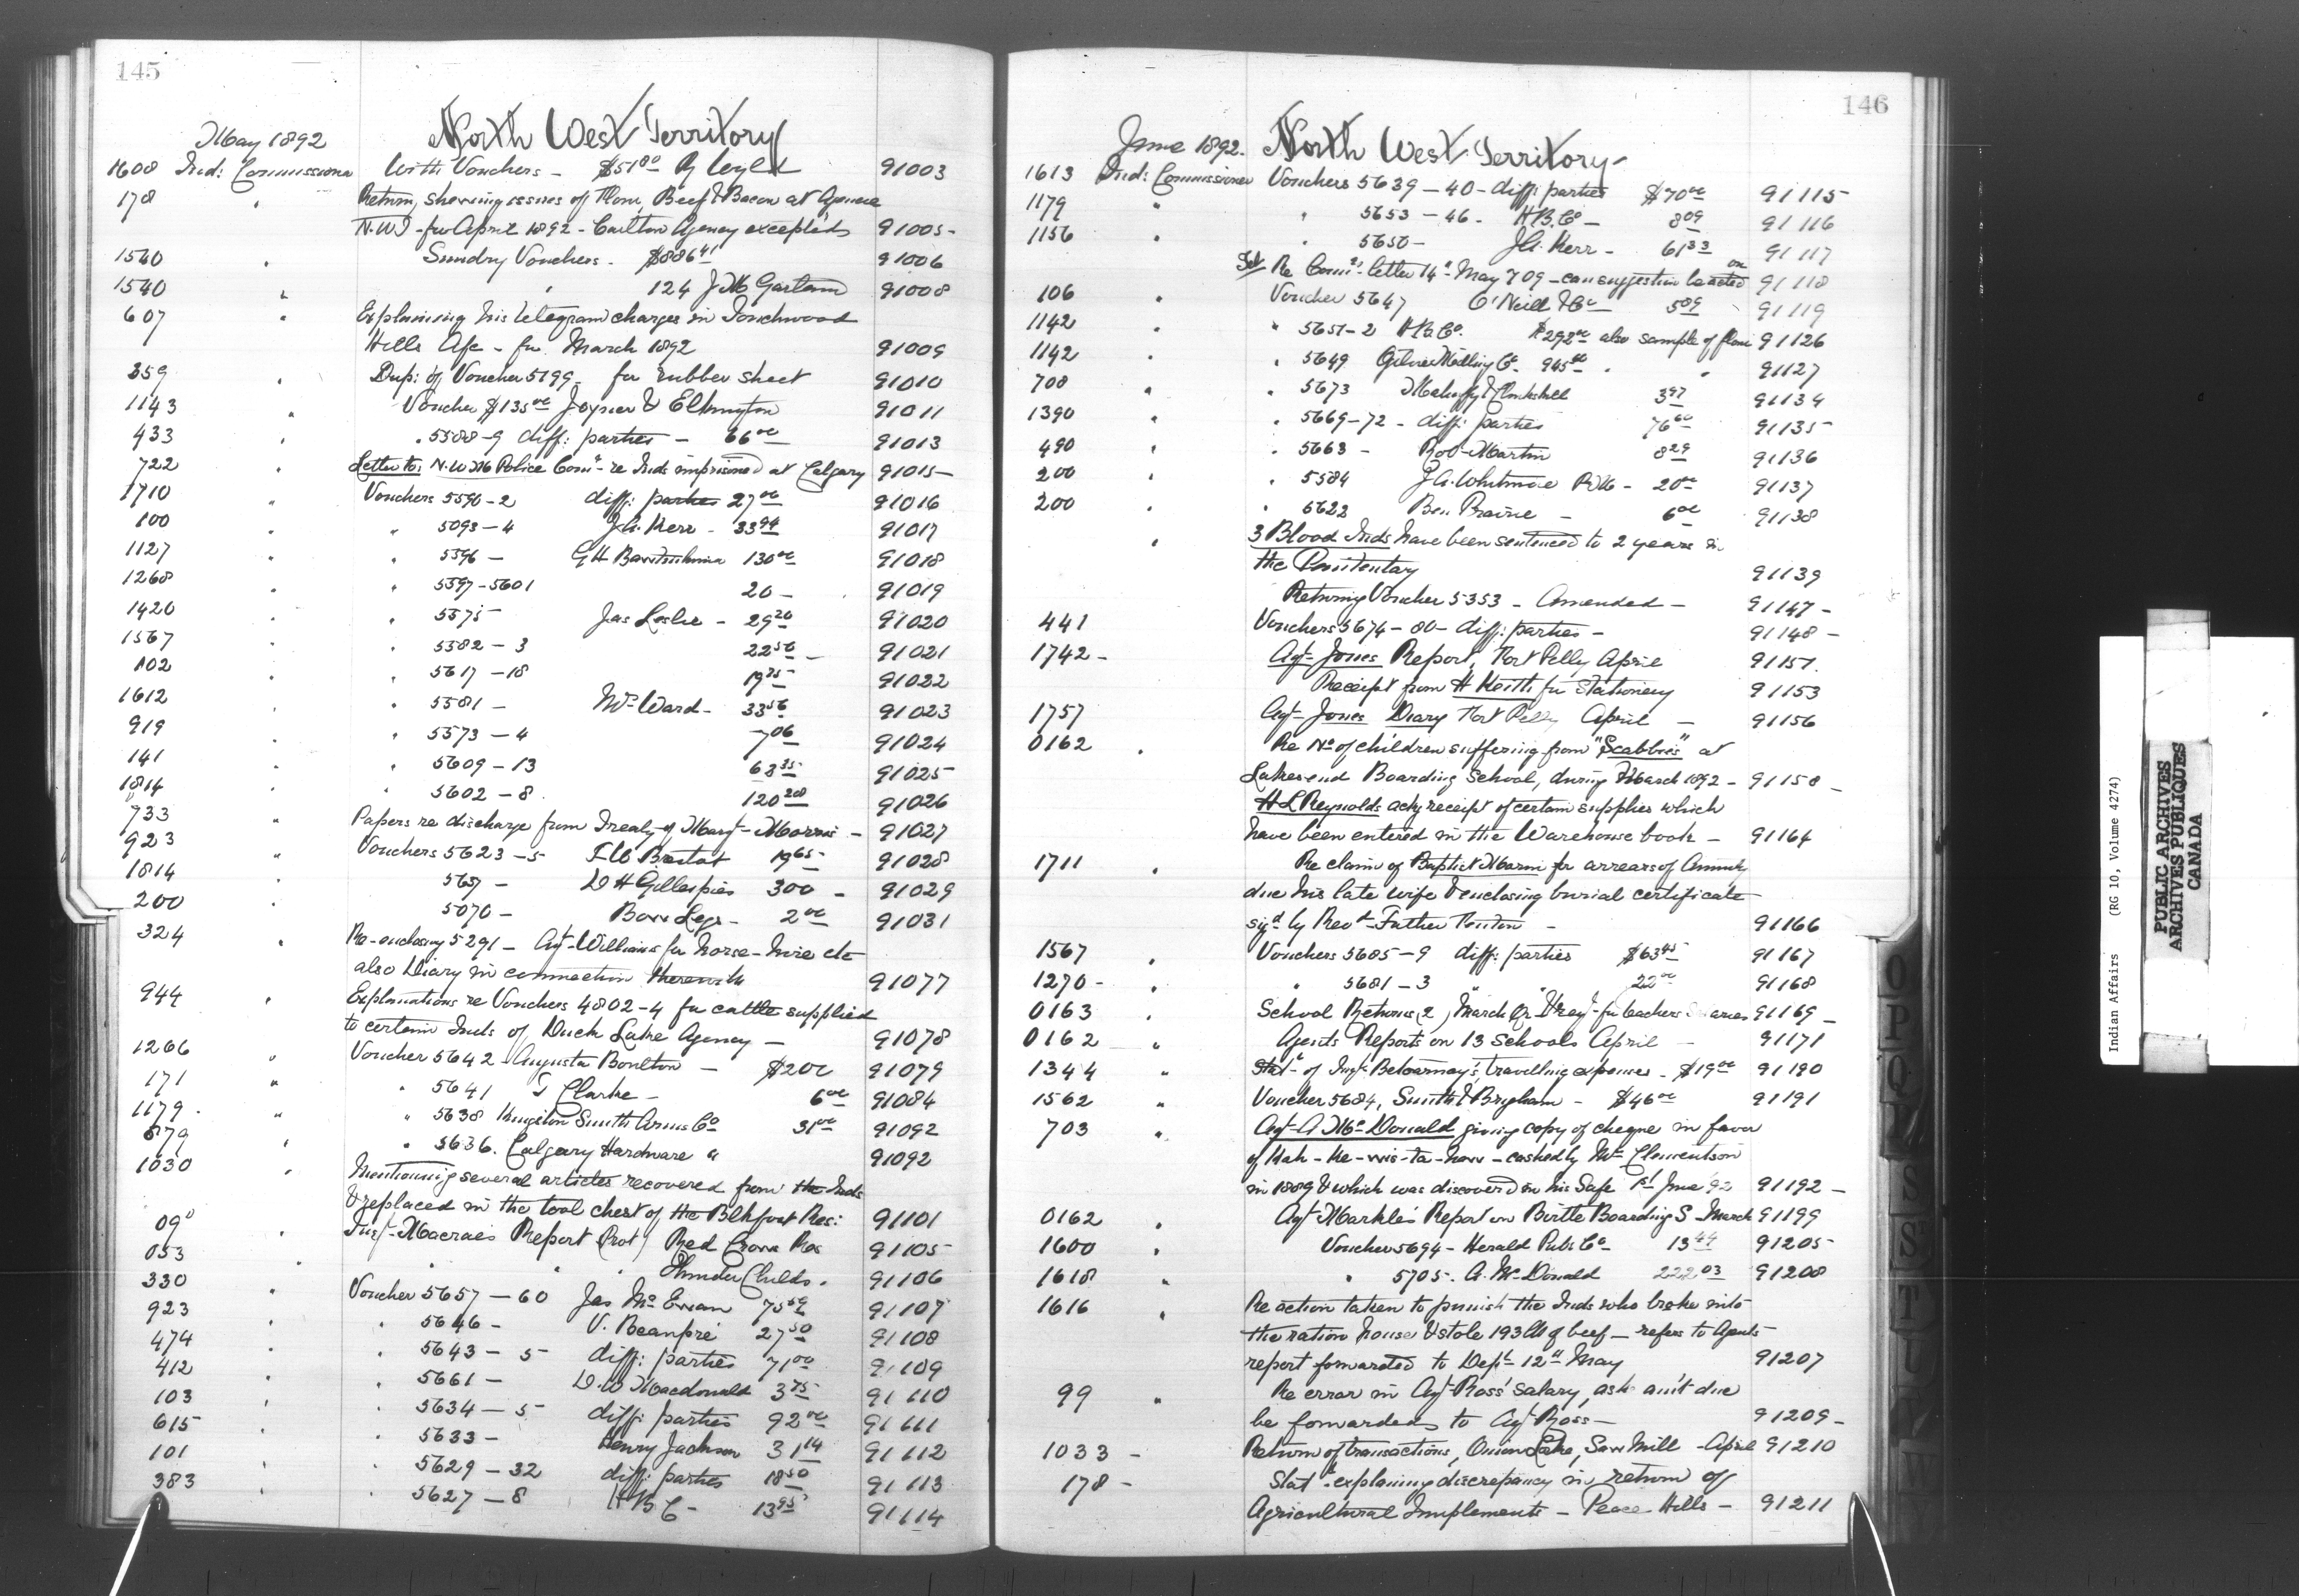 145
May 1892
North West Territory
1608 Ind: Commissioner With Vouchers - $51 80 Wyld 91003
178 " Return, shewing issues of Flour, Beef & Bacon at Agencies
N.W.T - for April 1892 - Carlton Agency excepted 91005 -
1560 " Sundry Vouchers - $886 41 91006
1540 " " 124 J M Garland 91008
607 " Explaining his telegram charges in Touchwood
Hills A/c - for March 1892 91009
359 " Dup: of Voucher 5199 - for rubber sheet 91010
1143 " Voucher $135 00 Joyner & Elkington 91011
433 " " 5588-9 diff: parties - 66 00 91013
722 " Letter to: N.W.M Police Comr - re Inds imprisoned at Calgary 91015 -
1710 " Vouchers 5590-2 diff: parties 27 00 91016
100 " " 5593-4 J.A. Kerr - 33 94 91017
1127 " " 5596 - G H 130 00 91018
1268 " " 5597-5601 20 - 91019
1420 " " 5575 Jas Leslie - 29 20 91020
1567 " " 5582-3 22 50 - 91021
102 " " 5617-18 19 75 91022
1612 " " 5581 - Ward - 33 56 91023
919 " " 5573-4 7 06 91024
141 " " 5609-13 63 35 91025
1814 " " 5602-8 120 91026
733 " Papers re discharge from Treaty of Margt Morris - 91027
923 " Vouchers 5623-5 19 65 91028
1814 " D H Gillespie 300 - 91029
200 5070 - Bow Legs - 2 00 91031
324 " Re-enclosing 5291 - Agt Williams for horse-hire etc
also Diary in connection therewith 91077
944 " Explanations re Vouchers 4802-4 for cattle supplied
to certain Inds of Duck Lake Agency - 91078
1266 " Voucher 5642 - Augusta Boulton - $2 00 91079
171 " " 5641 T Clarke - 6 00 91084
1179 - " " 5638 Kingston Smith Arms Co 31 00 91092
879 " " 5636. Calgary Hardware " 91092
1030 " Mentioning several articles recovered from the Inds
& replaced in the tool chest of the Blkfoot Res: 91101
090 " Insp - Macraes Report (Prot) Red Crow Res 91105 -
053 " " " " Thunder Childs " 91106
330 " Voucher 5657-60 Jas Mc Ewan 75 59 91107
923 " " 5646 - V. Beaupré 27 50 91108
474 " " 5643-5 diff: parties 71 00 91109
412 " " 5661 - D.W Macdonald 3 75 91110
103 " " 5634-5 diff: parties 92 00 91111
615 " " 5633 - Henry Jackson 31 14 91112
101 " " 5629-32 diff: parties 18 50 91113
383 " " 5627-8 H B C - 13 95 91114
146
June 1892. North West Territory -
1613 Ind: Commissioner Vouchers 5639-40 - diff: parties $70 00 91115 -
1179 " " 5653-46 - H.B.Co - 8 09 91116
1156 " " 5650 - J.A. Kerr - 61 33 91117
Tel Re Comrs letter 14th May 709 - can suggestion be acted on 91118
106 " Voucher 5647 O'Neill & Co 5 89 91119
1142 " 5651-2 H.B.Co. $292 00 also sample of flour 91126
1142 " " 5649 Milling Co. 945 00 " " 91127
708 " " 5673 Mahaffy & Clinkskill 3 97 91134
1390 " " 5669-72 - diff: parties 76 60 91135 -
490 " " 5663 - Rob Martin 8 29 91136
200 " " 5584 J.A. Whitmore P.M - 20 00 91137
200 " " 5622 Ben Prairie - 6 00 91138
" 3 Blood Inds have been sentenced to 2 years in
the Penitentary 91139
Returning Voucher 5353 - Amended - 91147 -
441 Vouchers 5674-80 - diff: parties - 91148 -
1742 - Agt Jones Report, Fort Pelly April 91151.
Receipt from H Keith for stationery 91153
1757 Agt Jones Diary Fort Pelly April - 91156
0162 " Re No of children suffering from "Scabbies" at
Lakesend Boarding School, during March 1892 - 91158 -
H L Reynolds ackg receipt of certain supplies which
have been entered in the Warehouse book - 91164
1711 " Re claim of Baptist for arrears of Annuity
due his late wife & enclosing burial certificate
sigd by Revd Father - 91166
1567 " Vouchers 5685-9 diff: parties $63 45 91167
1270 - " " 5681-3 " " 22 00 91168
0163 " School Returns (2) March Qr for teachers Salaries 91169 -
0162 " Agents Reports on 13 Schools April - 91171
1344 " Statt of Insp. travelling expenses - $19 00 91190
1562 " Voucher 5684, Smith & Brigham - $46 00 91191
703 " Agt A Mc Donald giving copy of cheque in favor
of Kah-ke-wis-ta-haw - cashed by Mr Clementson
in 1889 & which was discovered in his Safe 1st June 92 91192 -
0162 " Agt Markle's Report on Birtle Boarding S - March 91199
1600 " Voucher 5694 - Herald Pub: Co - 13 44 91205 -
1618 " " 5705 - A. Mc Donald 222 03 91208
1616 " Re action taken to punish the Inds who broke into
the ration house & stole 193 lbs of beef - refers to Agents
report forwarded to Dept 12th May 91207
99 " Re error in Agt Ross' salary, asks am't due
be forwarded to Agt Ross - 91209 -
1033 - Return of transactions, Onion Lake, Saw Mill - April 91210
178 - Statt explaining discrepancy in return of
Agricultural Implements - Peace Hills - 91211
O
P
Q
S
S
T
U
W
Indian Affairs (RG 10, Volume 4274)
PUBLIC ARCHIVES
ARCHIVES PUBLIQUES
CANADA